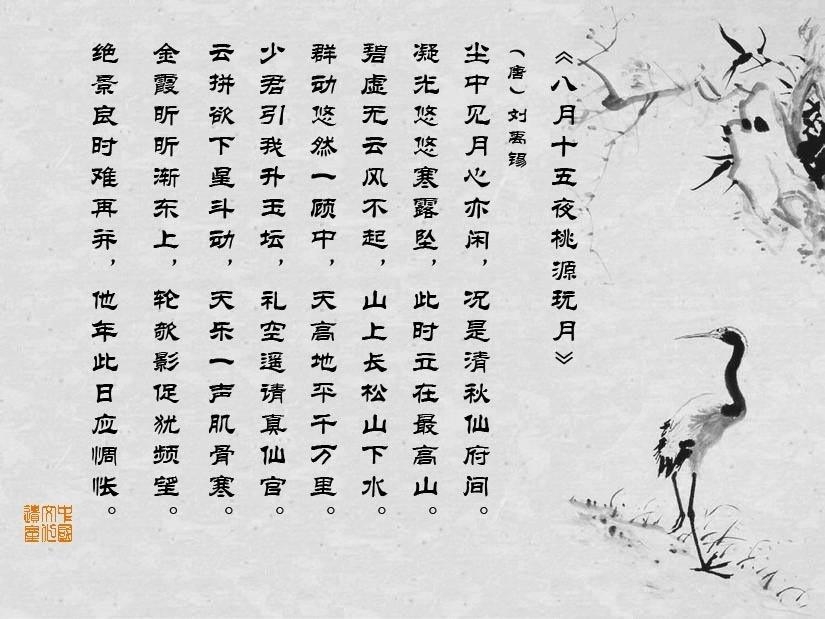 《八月十五夜桃源玩月》
（唐）刘禹锡
尘中见月心亦闲，况是清秋仙府间。
凝光悠悠寒露坠，此时立在最高山。
碧虚无云风不起，山上长松山下水。
群动悠然一顾中，天高地平千万里。
少君引我升玉坛，礼空遥请真仙官。
云拼欲下星斗动，天乐一声肌骨寒。
金霞昕昕渐东上，轮欹影促犹频望。
绝景良时难再并，他年此日应惆怅。
中國
文化
遺